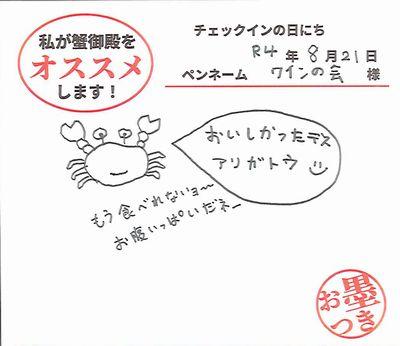 私が蟹御殿を
オススメ
します！
チェックインの日にち
R4 年 8 月 21 日
ペンネーム ワインの会 様
おいしかったデス
アリガトウ
もう食べれないョ〜
お腹いっぱいだネー
お墨つき